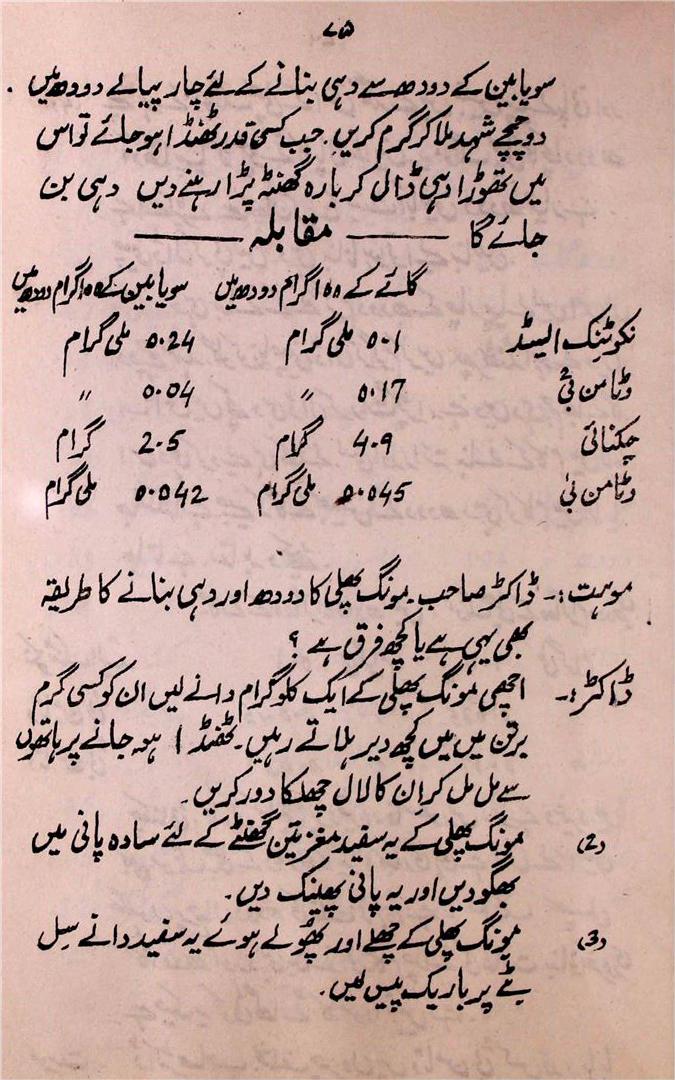 ۷۵
سویابین کے دودھ سے دہی بنانے کے لئے چار پیالے دودھ میں
دو چمچے شہد ملا کر گرم کریں۔ جب کسی قدر ٹھنڈا ہو جائے تو اس
میں تھوڑا دہی ڈال کر بارہ گھنٹہ پڑا رہنے دیں دہی بن
جائے گا ——— مقابلہ ———
گائے کے ۱۵۵ گرام دودھ میں سویابین کے ۱۵۵ گرام دودھ میں
نکوٹنک ایسڈ 0.1 ملی گرام 0.24 ملی گرام
وٹامن بی۲ 0.17 〃 0.04 〃
چکنائی 4.9 گرام 2.5 گرام
وٹامن بی۱ 0.045 ملی گرام 0.042 ملی گرام
موہت:۔ ڈاکٹر صاحب۔ مونگ پھلی کا دودھ اور دہی بنانے کا طریقہ
بھی یہی ہے یا کچھ فرق ہے ؟
ڈاکٹر:۔ اچھی مونگ پھلی کے ایک کلو گرام دانے لیں ان کو کسی گرم
برتن میں میں کچھ دیر ہلاتے رہیں۔ ٹھنڈا ہو جانے پر ہاتھوں
سے مل مل کر اِن کا لال چھلکا دور کریں۔
(2) مونگ پھلی کے یہ سفید مغز تین گھنٹے کے لئے سادہ پانی میں
بھگو دیں اور یہ پانی پھینک دیں۔
(3) مونگ پھلی کے چھلے اور پھولے ہوئے یہ سفید دانے سِل
بٹے پر باریک پیس لیں۔